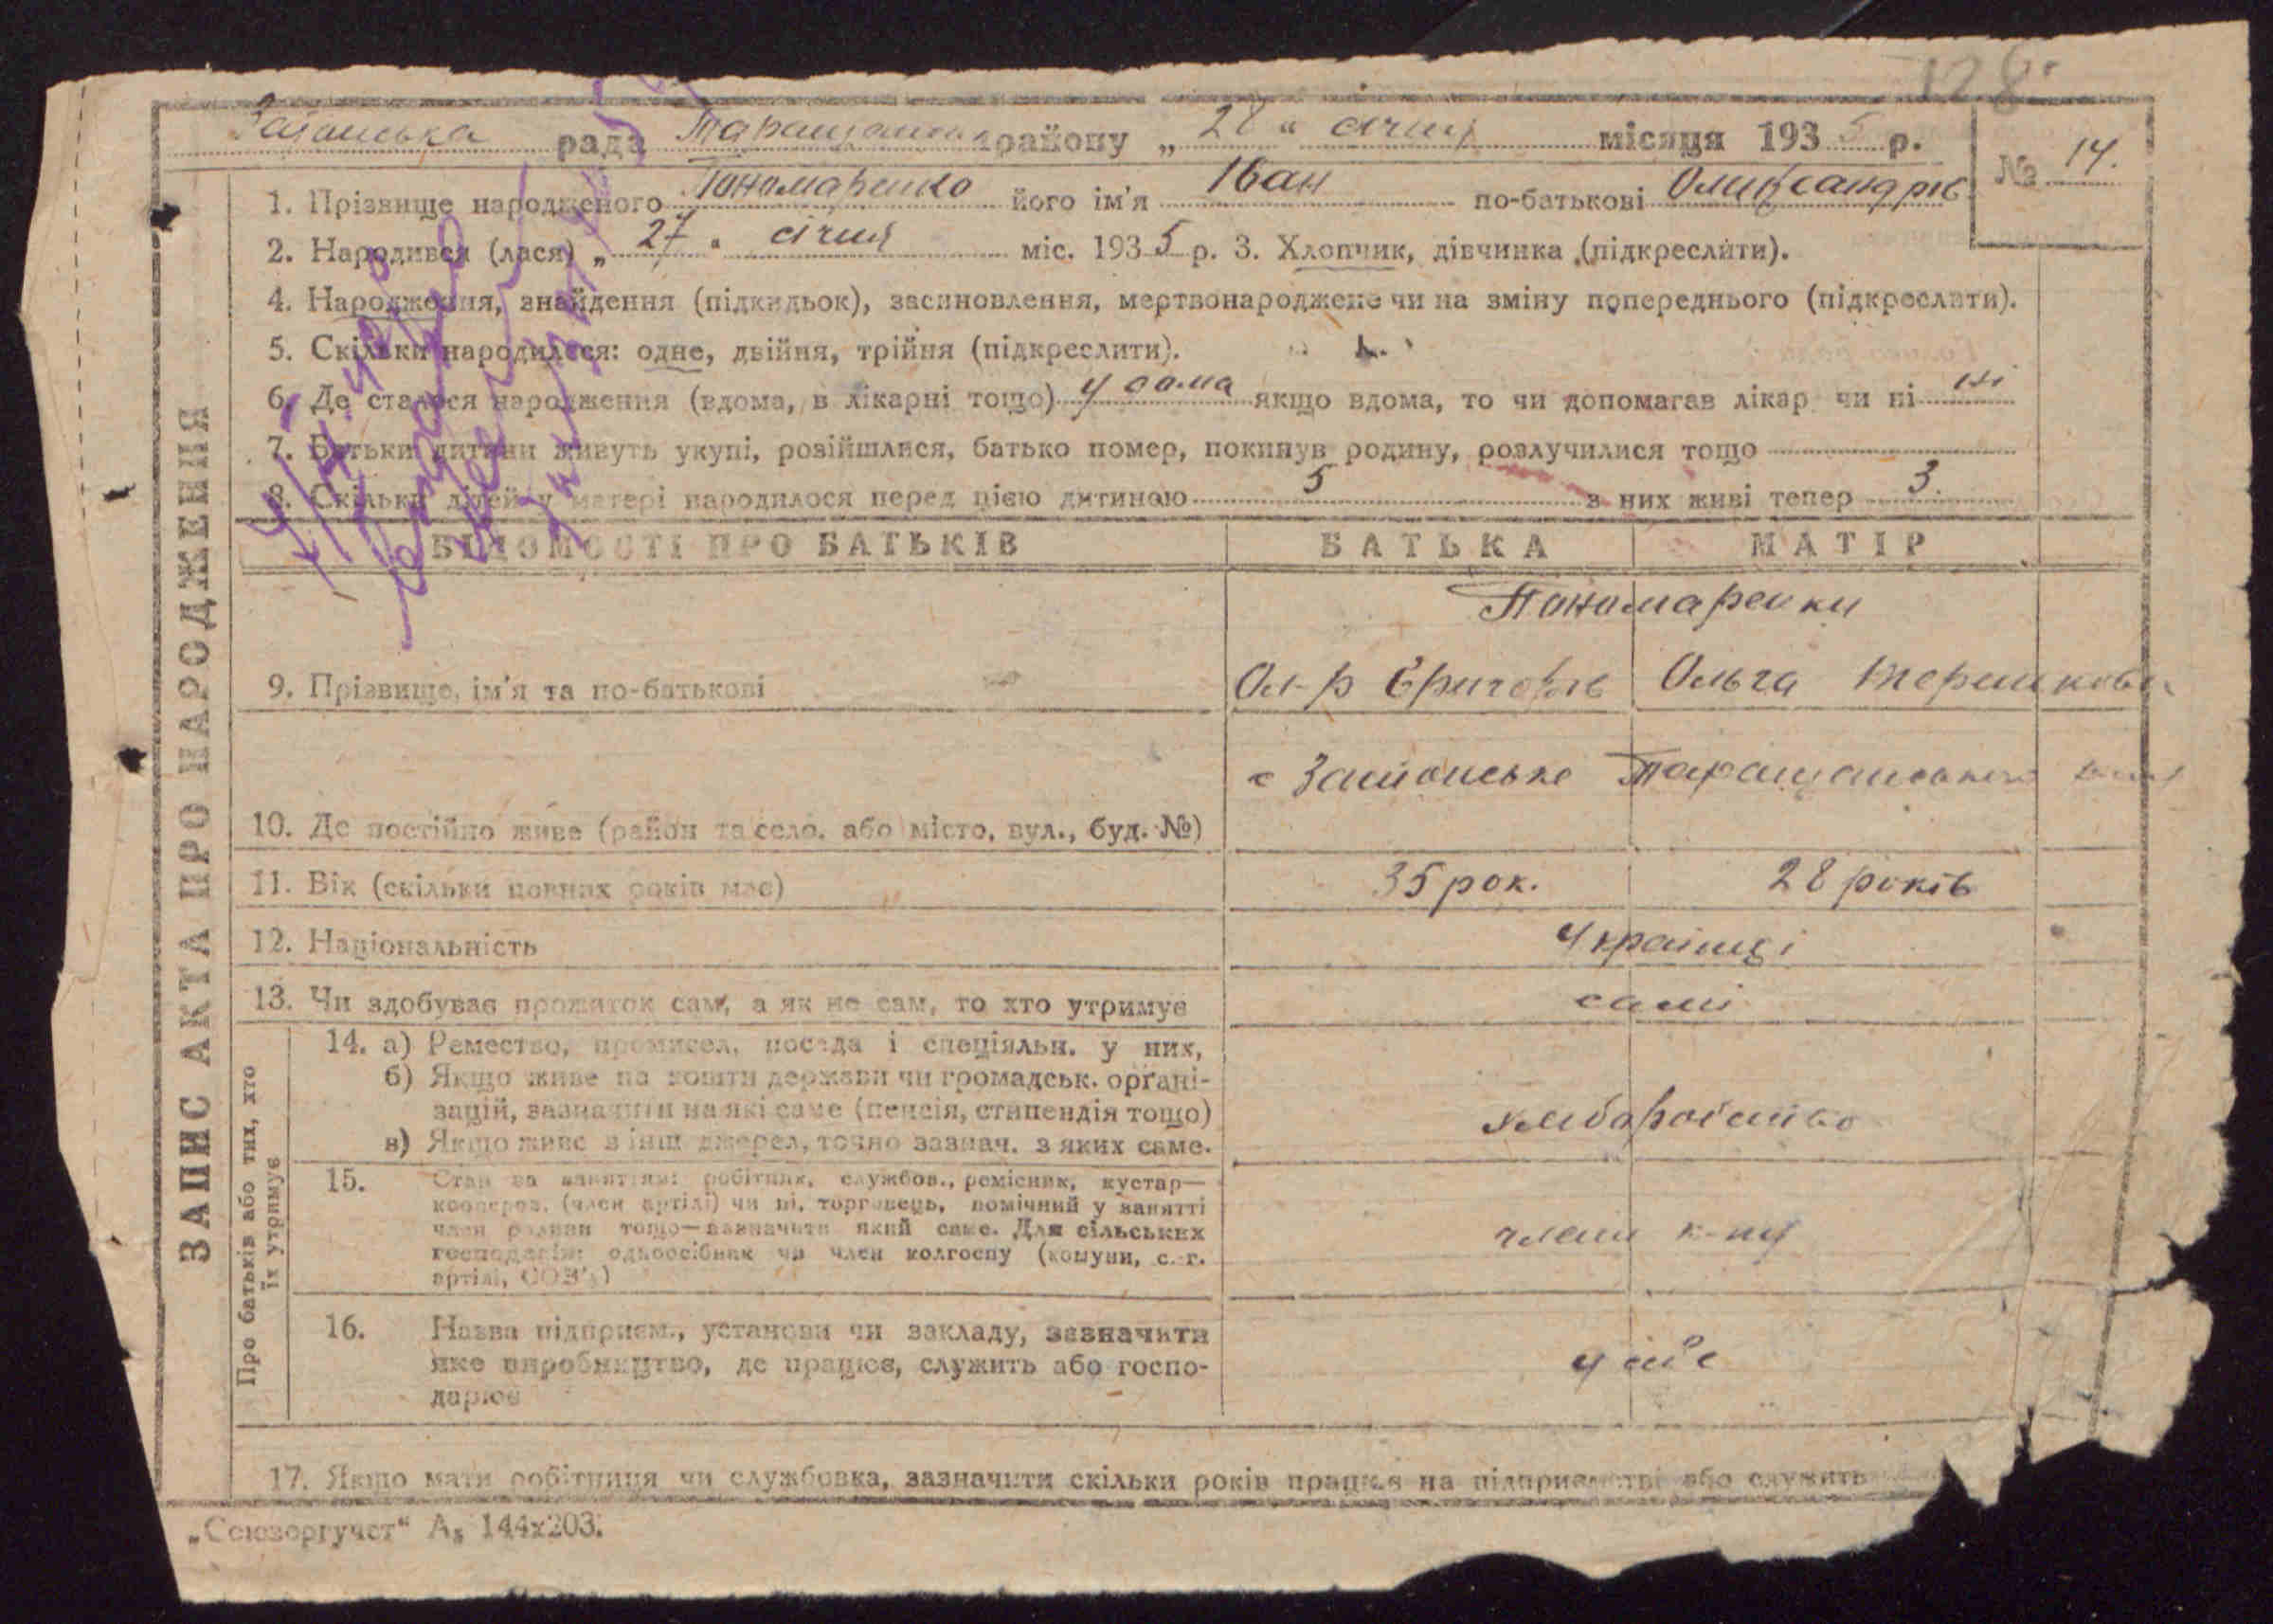 128
рада Таращанс району „ 28 “ січня місяця 193 5 р.
№ 14.
1. Прізвище народженого Пономаренко його ім'я Іван по-батькові Олександрів
2. Народився (лася) „ 27 “ січня міс. 193 5 р. 3. Хлопчик, дівчинка (підкреслити).
4. Народження, знайдення (підкидьок), засиновлення, мертвонароджене чи на зміну попереднього (підкреслити).
5. Скільки народилося: одне, двійня, трійня (підкреслити).
6. Де сталося народження (вдома, в лікарні тощо) у дома якщо вдома, то чи допомагав лікар чи ні ні
7. Батьки дитини живуть укупі, розійшлися, батько помер, покинув родину, розлучилися тощо
8. Скільки дітей у матері народилося перед цією дитиною 5 з них живі тепер 3.
ВІДОМОСТІ ПРО БАТЬКІВ БАТЬКА МАТІР
Пономаренки
9. Прізвище, ім'я та по-батькові Ол-р Григорів Ольга
10. Де постійно живе (район та село, або місто, вул., буд. №) с Таращанського
11. Вік (скільки повних років має) 35 рок. 28 років
12. Національність Українці
13. Чи здобуває прожиток сам, а як не сам, то хто утримує самі
14. а) Ремество, промисел, посада і спеціяльн. у них,
б) Якщо живе на кошти держави чи громадськ. органі-
зацій, зазначити на які саме (пенсія, стипендія тощо)
в) Якщо живе з інш джерел, точно зазнач. з яких саме.
хліборобство
15. Стан за заняттям: робітник, службов., ремісник, кустар—
коопєров. (член артілі) чи ні, торговець, помічний у занятті
член родини тощо—зазначити який саме. Для сільських
господарів: одноосібник чи член колгоспу (комуни, с.-г.
артілі, СОЗ'у)
члени к-пу
16. Назва підприєм., установи чи закладу, зазначити
яке виробництво, де працює, служить або госпо-
дарює
17. Якщо мати робітниця чи службовка, зазначити скільки років працює на підприємстві або служить
„Союзоргучет“ А₅ 144х203.
ЗАПИС АКТА ПРО НАРОДЖЕННЯ
Про батьків або тих, хто
їх утримує